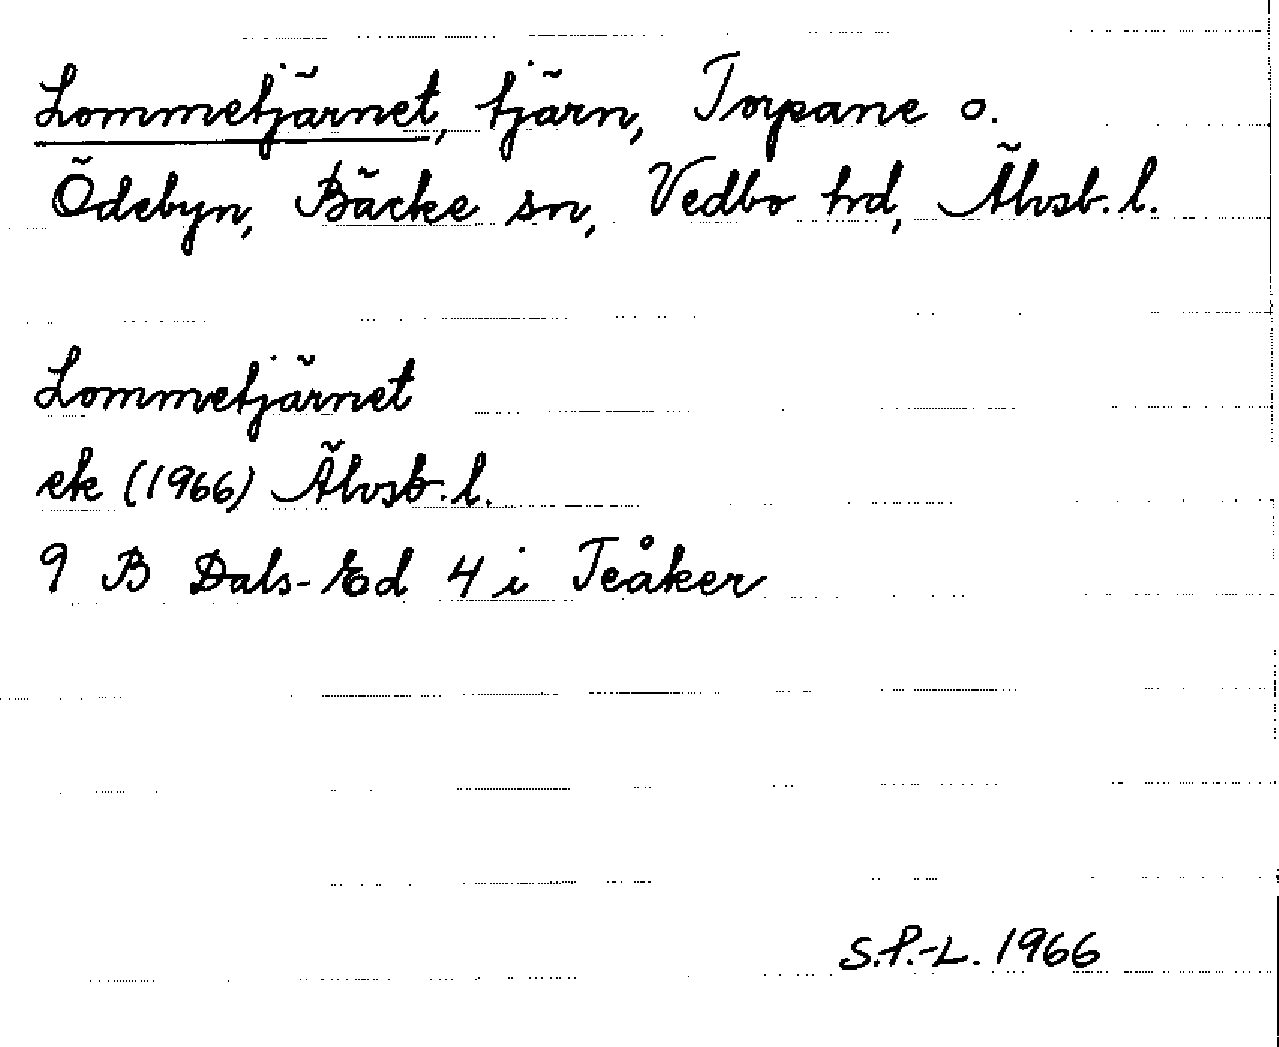 Lommetjärnet, tjärn, Torpane o.
Ödebyn, Bäcke sn, Vedbo hd, Älvsb. l.
Lommetjärnet
ek (1966) Älvsb. l.
9 B Dals-Ed 4 i Teåker
S.P.-L. 1966